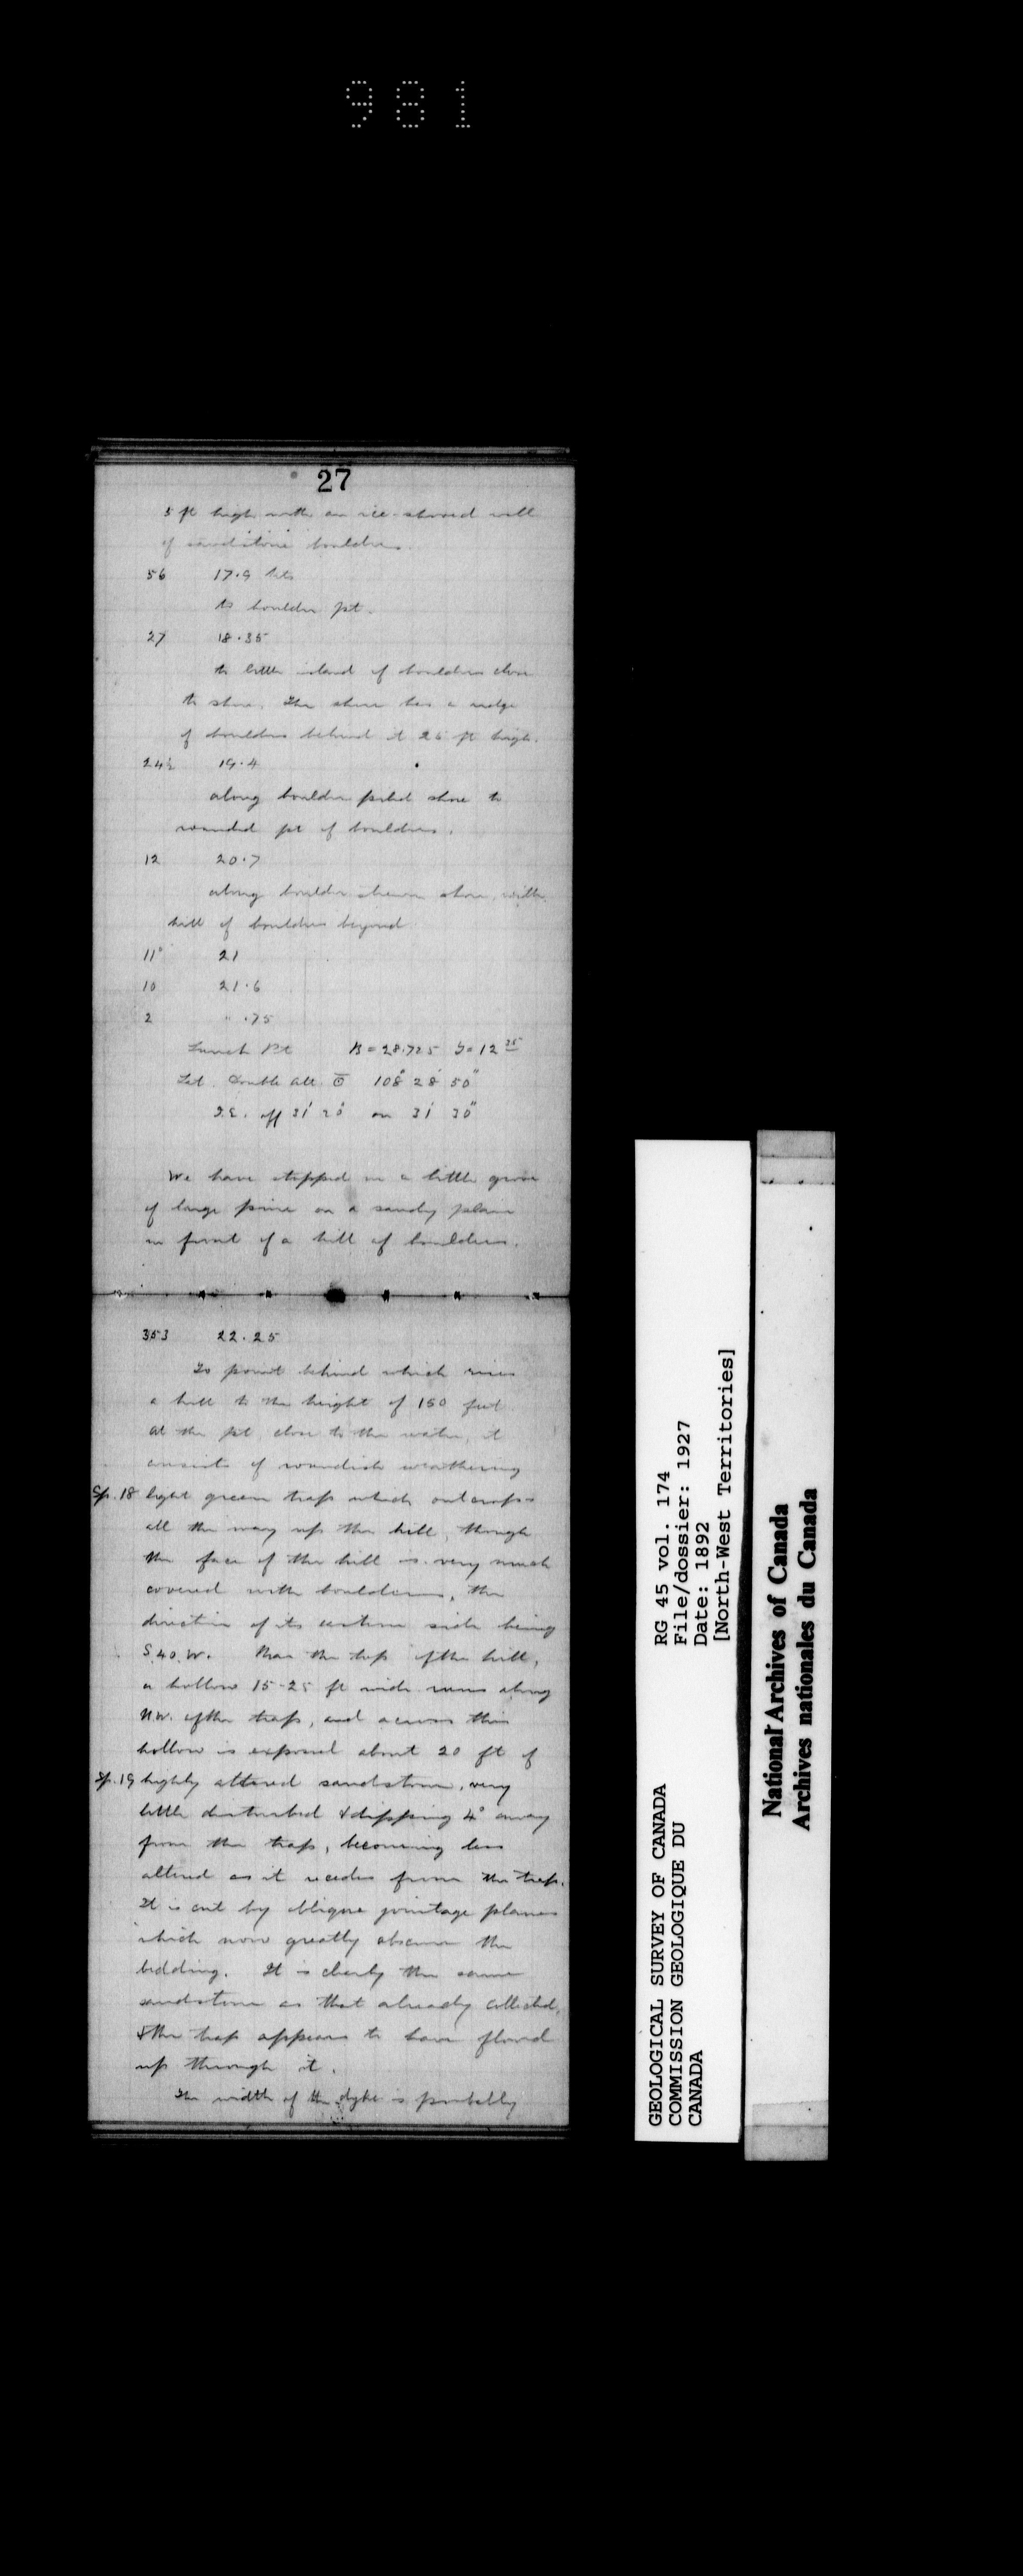 981
27
5 ft high with an ice-shoved wall
of sandstone boulders.
56 17.9
to boulder pt.
27 18.35
to little island of boulders close
to shore. The shore has a ridge
of boulders behind it 25 ft high.
24½ 19.4
along boulder piled shore to
rounded pt of boulders.
12 20.7
along boulder strewn shore, with
hill of boulders beyond
11° 21
10 21.6
2 " .75
Lunch Pt B = 28.725 T = 12 25
Lat. Double alt. 108° 28' 50"
I.E. off 31' 20" on 31' 30"
We have stopped in a little grove
of large pine on a sandy plain
in front of a hill of boulders.
353 22.25
To point behind which rises
a hill to the height of 150 feet
At the pt close to the water, it
consists of roundish weathering
Sp. 18 light green trap which outcrops
all the way up the hill, though
the face of the hill is very much
covered with boulders, the
direction of its eastern side being
S.40.W. Near the top of the hill,
a hollow 15-25 ft wide runs along
N.W. of the trap, and across this
hollow is exposed about 20 ft of
Sp. 19 highly altered sandstone, very
little disturbed & dipping 4° away
from the trap, becoming less
altered as it recedes from the trap.
It is cut by oblique jointage planes
which now greatly obscure the
bedding. It is clearly the same
sandstone as that already collected,
& the trap appears to have flowed
up through it.
The width of the dyke is probably
GEOLOGICAL SURVEY OF CANADA
COMMISSION GEOLOGIQUE DU
CANADA
RG 45 vol. 174
File/dossier: 1927
Date: 1892
[North-West Territories]
National Archives of Canada
Archives nationales du Canada